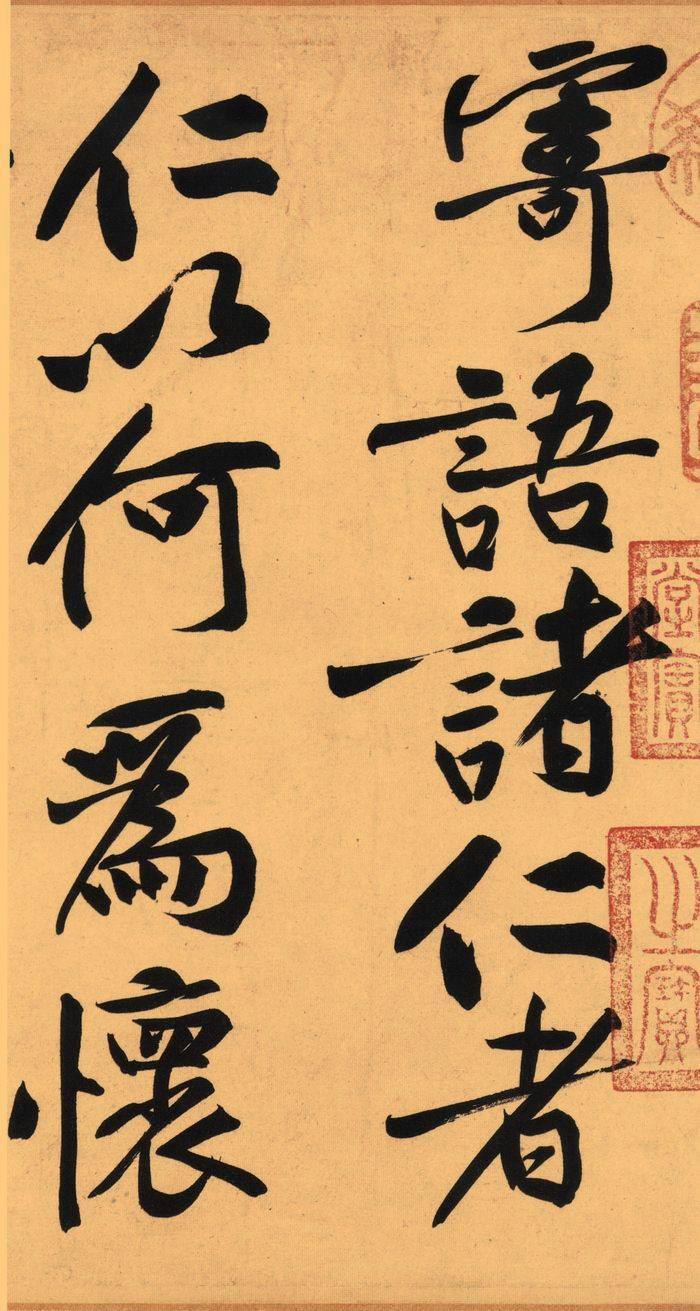 寄語諸仁者
仁以何為懷